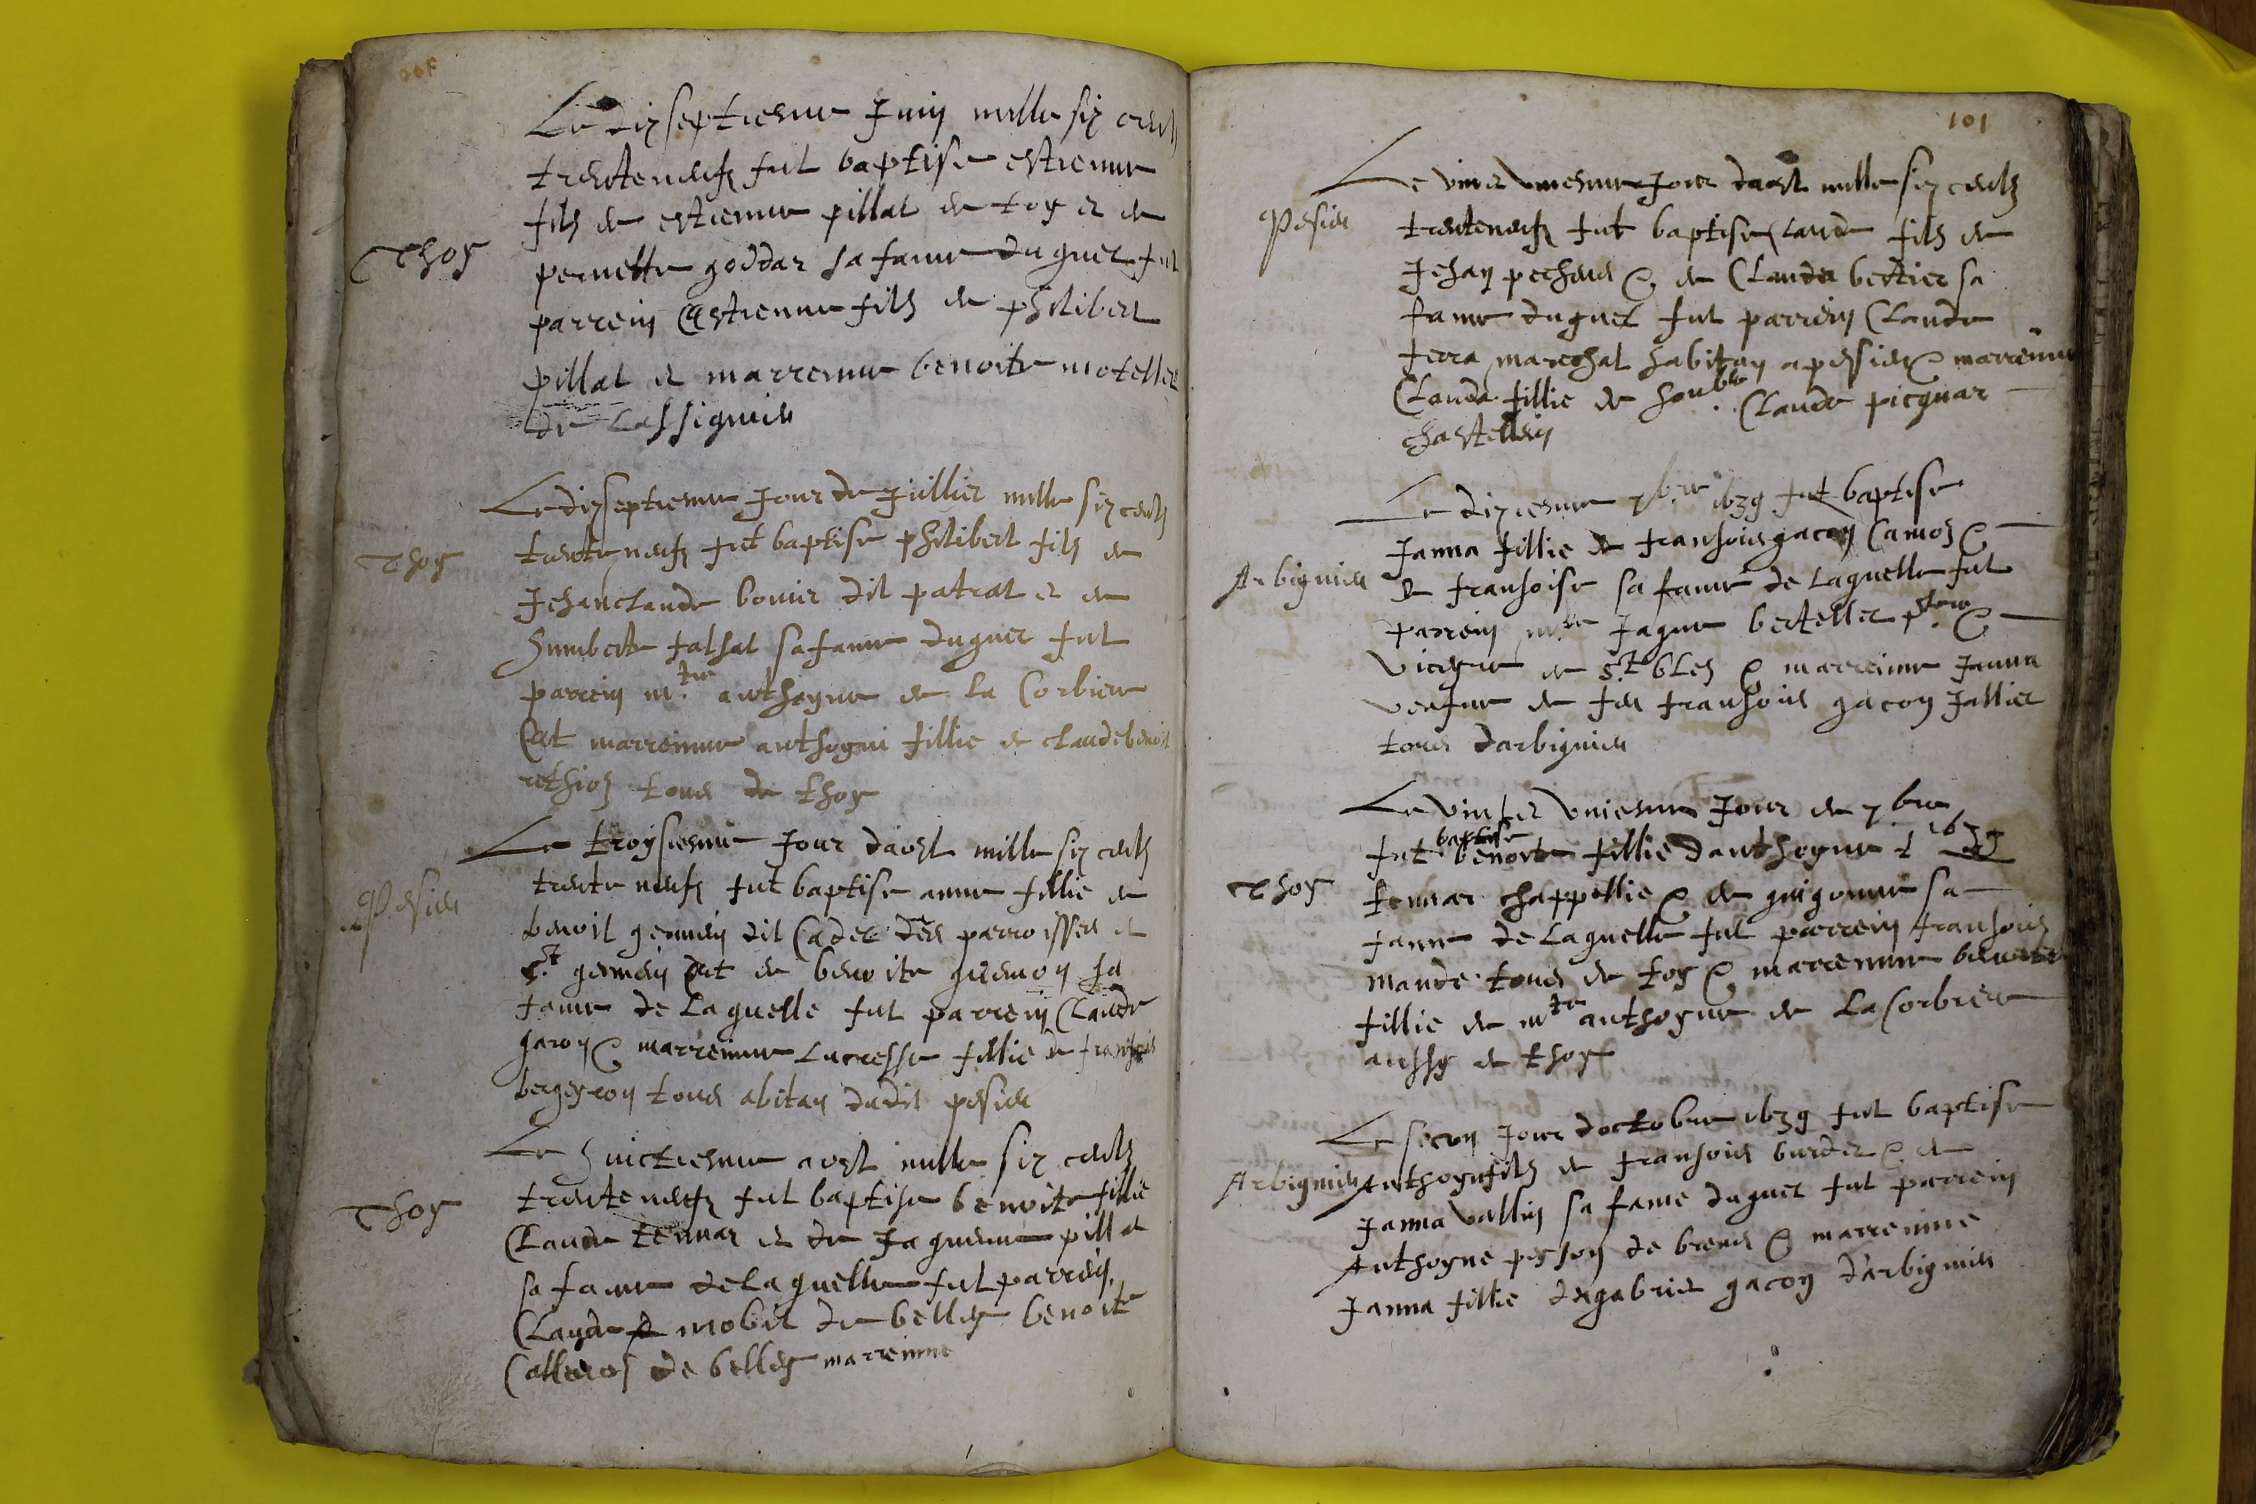 Le dixseptiesme Juin mille six cents
trenteneufz fut baptise estienne
filz de estienne pillat de toy et de
Thoy
pernette goddar sa fame duquel fut
parrein Estienne filz de philibert
pillat et marrenne benoite motellet
de Lassignieu
Le dixseptiesme Jour de Juillier mille six centz
Thoy
trente neufz fut baptise philibert filz de
Jehanclaude bovier dit patrat et de
humberte falsat sa fame duquel fut
parrein mtre anthoyne de la Corbiere
Et marrenne anthoyni fillie de claude benoit
tous de thoy
Le troysiesme Jour daost mille six centz
Pesieu
trente neufz fut baptise anne fillie de
benoit gennin dit Cadet des parroisses de
st germein et de benoite guemon sa
fame de Laquelle fut parrein Claude
garon & marrenne Lucresse fillie de fransois
bergeyron tous abitan dudit pesieu
Le huictiesme aost mille six centz
Thoy
trenteneufz fut baptise benoite fillie
Claude tennar et de Jaquemme pillat
sa fame de Laquelle fut parrein
Claude mobit de belley benoite
de belley marrenne
101
Le vint et uniesme Jour daost mille six centz
Pesieu
trenteneufz fut baptise Claude filz de
Jehan pecheus & de Clauda bertier sa
fame duquel fut parrein Claude
ferra marechal habitan a pesieu & marrenne
Clauda fillie de honble Claude picquar
chastellein
Le dixiesme 7bre 1639 fut baptise
Janna fillie de fransois gacon Camoz &
Arbignieu
de fransoise sa fame de Laquelle fut
parrein mre Jaque bertellet pbre &
vicayre de st blez & marrenne Janna
veufue de feu fransois gacon Jallier
tous darbignieu
Le vint et uniesme Jour de 7bre
1639
fut baptise benoite fillie danthoyne
Thoy
tennar chappellie & de guigonne sa
fame de Laquelle fut parrein fransois
mande tous de toy & marrenne benoite
fillie de mtre anthoyne de La Corbiere
aussy de thoy
Le secon Jour doctobre 1639 fut baptise
Arbignieu
Anthoyne filz de fransois burdet & de
Janna vallin sa fame duquel fut parrein
Anthoyne peyson de brens & marrenne
Janna fillie de gabriel gacon d'arbignieu